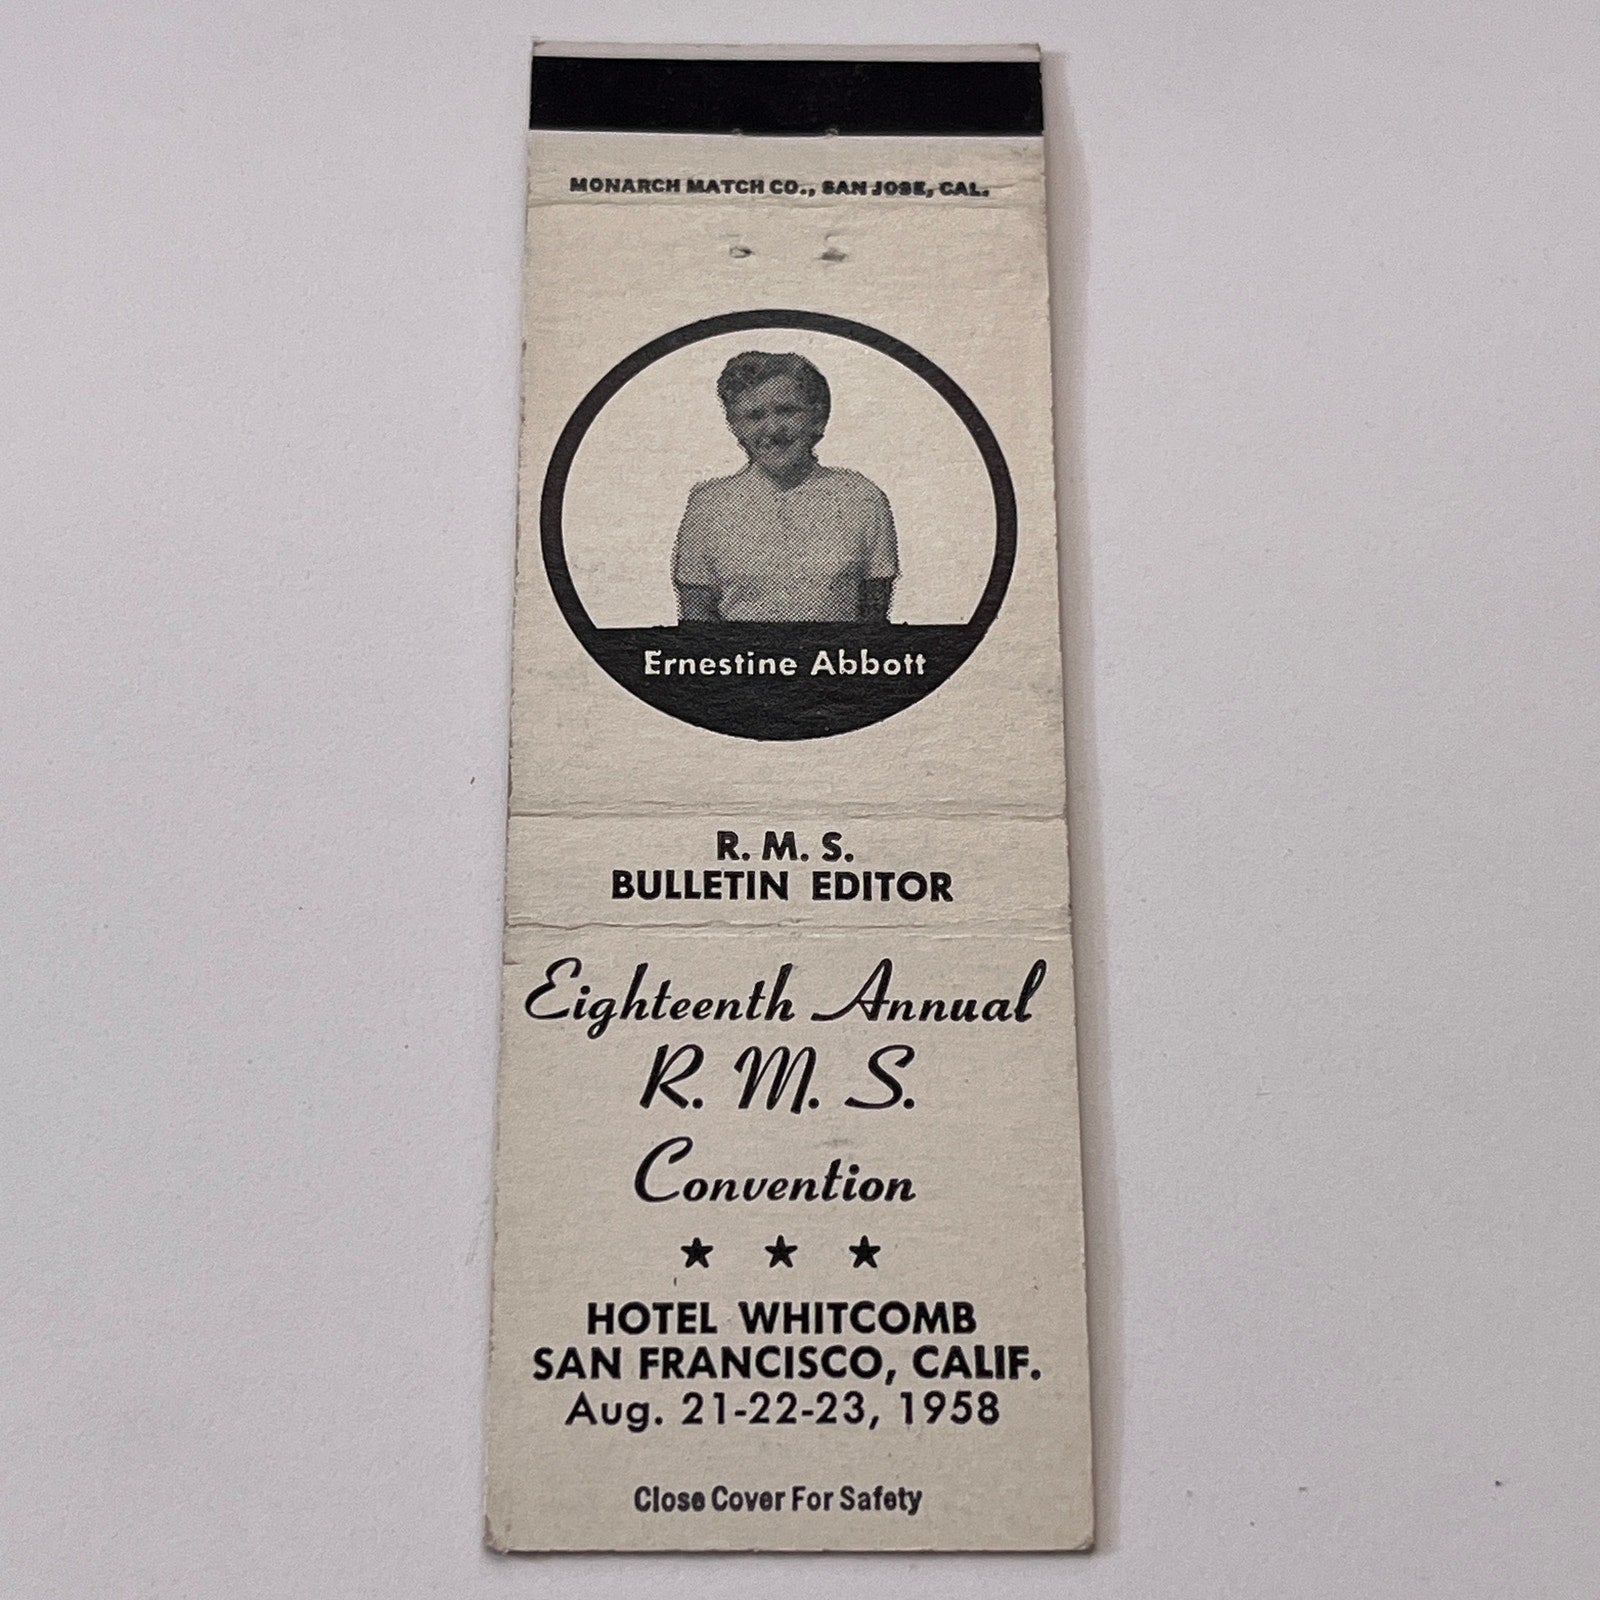 MONARCH MATCH CO., SAN JOSE, CAL.
Ernestine Abbott
R. M. S.
BULLETIN EDITOR
Eighteenth Annual
R. M. S.
Convention
★ ★ ★
HOTEL WHITCOMB
SAN FRANCISCO, CALIF.
Aug. 21-22-23, 1958
Close Cover For Safety